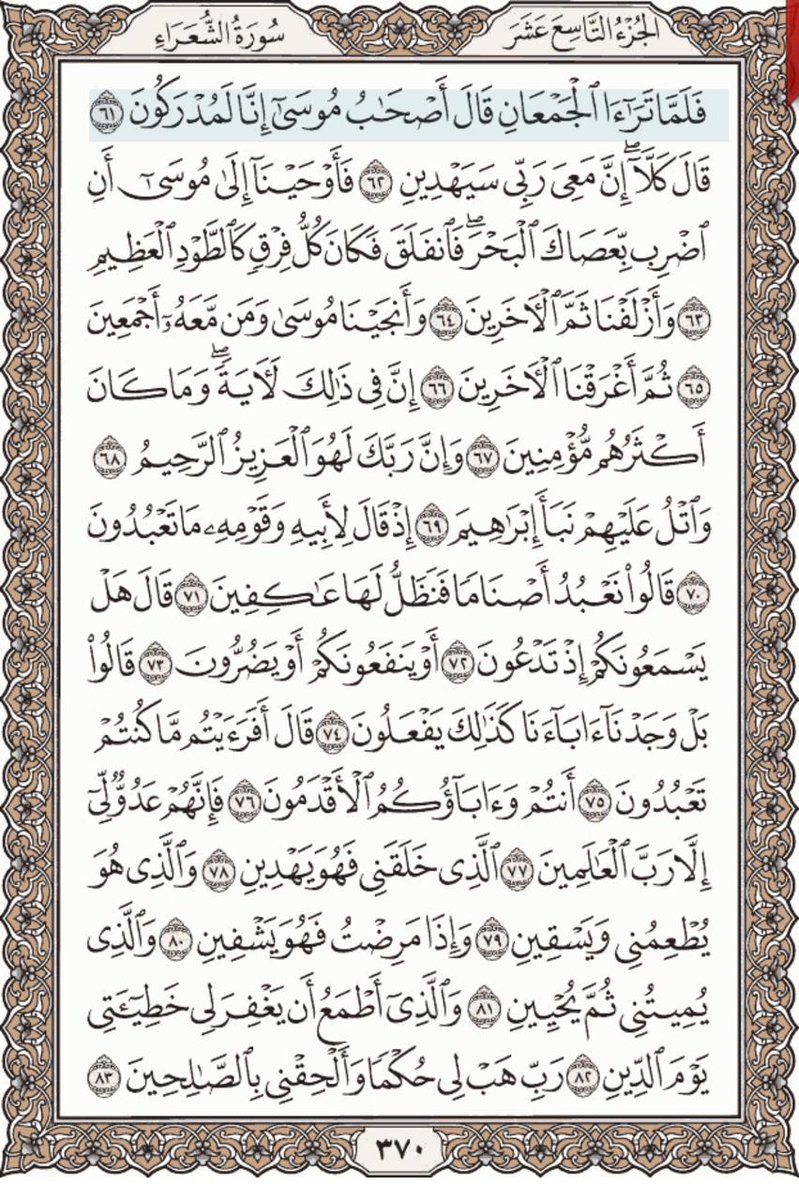 الجُزْءُ التَّاسِعَ عَشَرَ
سُورَةُ الشُّعَرَاءِ
فَلَمَّا تَرَٰٓءَا ٱلْجَمْعَانِ قَالَ أَصْحَٰبُ مُوسَىٰٓ إِنَّا لَمُدْرَكُونَ ٦١
قَالَ كَلَّآ ۖ إِنَّ مَعِىَ رَبِّى سَيَهْدِينِ ٦٢ فَأَوْحَيْنَآ إِلَىٰ مُوسَىٰٓ أَنِ
ٱضْرِب بِّعَصَاكَ ٱلْبَحْرَ ۖ فَٱنفَلَقَ فَكَانَ كُلُّ فِرْقٍ كَٱلطَّوْدِ ٱلْعَظِيمِ
٦٣ وَأَزْلَفْنَا ثَمَّ ٱلْـَٔاخَرِينَ ٦٤ وَأَنجَيْنَا مُوسَىٰ وَمَن مَّعَهُۥٓ أَجْمَعِينَ
٦٥ ثُمَّ أَغْرَقْنَا ٱلْـَٔاخَرِينَ ٦٦ إِنَّ فِى ذَٰلِكَ لَـَٔايَةً ۖ وَمَا كَانَ
أَكْثَرُهُم مُّؤْمِنِينَ ٦٧ وَإِنَّ رَبَّكَ لَهُوَ ٱلْعَزِيزُ ٱلرَّحِيمُ ٦٨
وَٱتْلُ عَلَيْهِمْ نَبَأَ إِبْرَٰهِيمَ ٦٩ إِذْ قَالَ لِأَبِيهِ وَقَوْمِهِۦ مَا تَعْبُدُونَ
٧٠ قَالُوا۟ نَعْبُدُ أَصْنَامًا فَنَظَلُّ لَهَا عَٰكِفِينَ ٧١ قَالَ هَلْ
يَسْمَعُونَكُمْ إِذْ تَدْعُونَ ٧٢ أَوْ يَنفَعُونَكُمْ أَوْ يَضُرُّونَ ٧٣ قَالُوا۟
بَلْ وَجَدْنَآ ءَابَآءَنَا كَذَٰلِكَ يَفْعَلُونَ ٧٤ قَالَ أَفَرَءَيْتُم مَّا كُنتُمْ
تَعْبُدُونَ ٧٥ أَنتُمْ وَءَابَآؤُكُمُ ٱلْأَقْدَمُونَ ٧٦ فَإِنَّهُمْ عَدُوٌّ لِّىٓ
إِلَّا رَبَّ ٱلْعَٰلَمِينَ ٧٧ ٱلَّذِى خَلَقَنِى فَهُوَ يَهْدِينِ ٧٨ وَٱلَّذِى هُوَ
يُطْعِمُنِى وَيَسْقِينِ ٧٩ وَإِذَا مَرِضْتُ فَهُوَ يَشْفِينِ ٨٠ وَٱلَّذِى
يُمِيتُنِى ثُمَّ يُحْيِينِ ٨١ وَٱلَّذِىٓ أَطْمَعُ أَن يَغْفِرَ لِى خَطِيٓـَٔتِى
يَوْمَ ٱلدِّينِ ٨٢ رَبِّ هَبْ لِى حُكْمًا وَأَلْحِقْنِى بِٱلصَّٰلِحِينَ ٨٣
٣٧٠